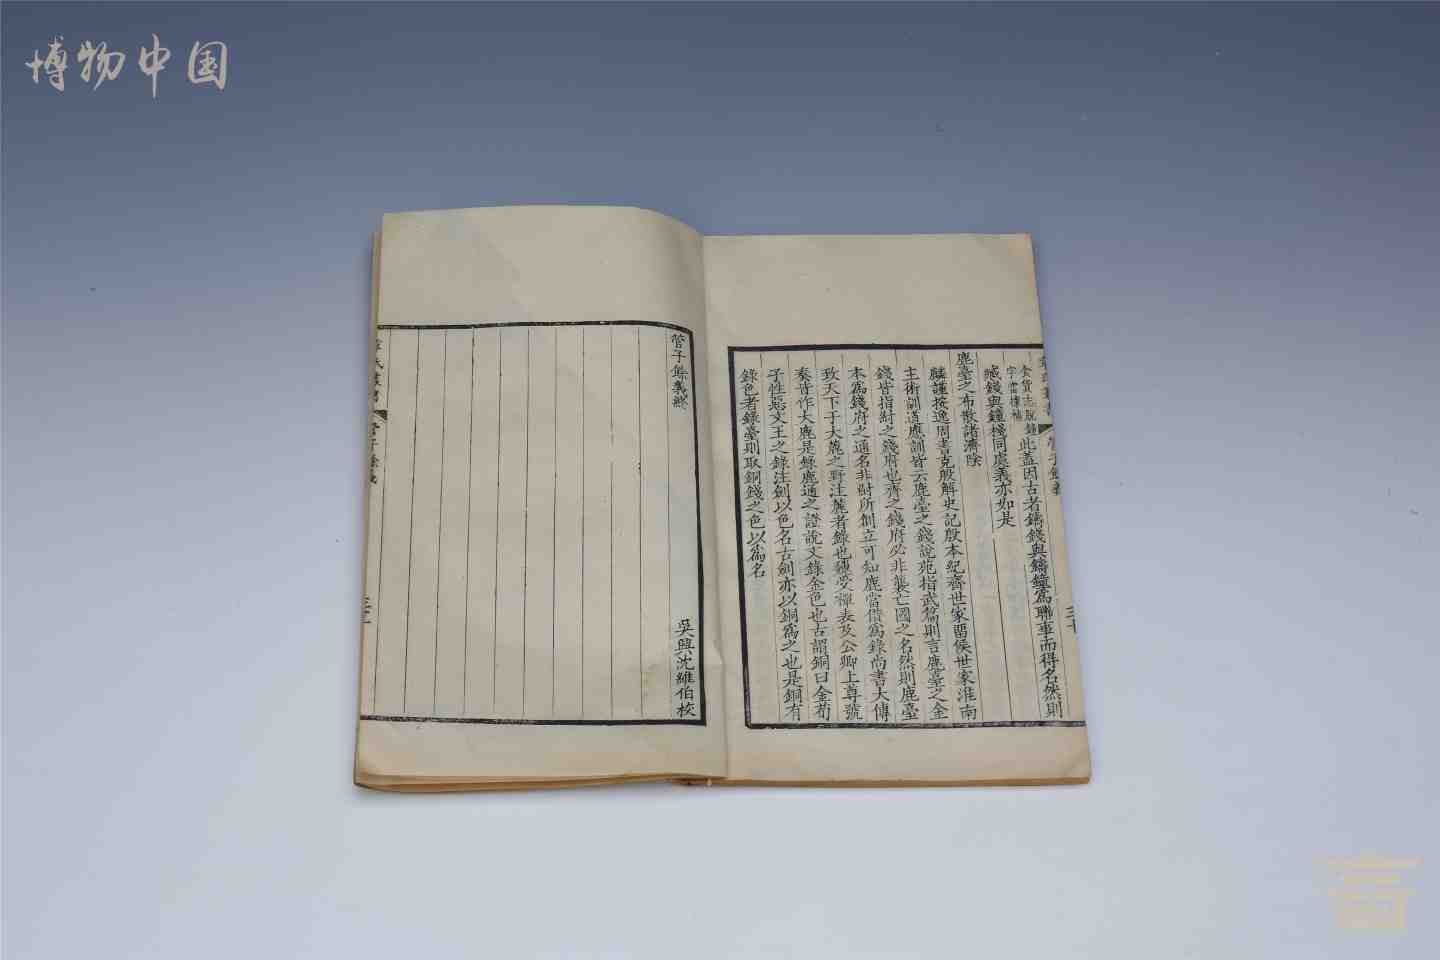 博物中国
食貨志脱鍾
字當據補
此蓋因古者鑄錢與鑄鐘爲聯事而得名然則
緘錢與鐘棧同處義亦如是
鹿臺之布散諸濟陰
麟謹按逸周書克殷解史記殷本紀齊世家畱侯世家淮南
主術訓道應訓皆云鹿臺之錢說苑指武篇則言鹿臺之金
錢皆指紂之錢府也齊之錢府必非襲亡國之名然則鹿臺
本爲錢府之通名非紂所創立可知鹿當借爲錄尚書大傳
致天下于大麓之野注麓者錄也魏受禪表及公卿上尊號
奏皆作大鹿是錄鹿通之證說文錄金色也古謂銅曰金荀
子性惡文王之錄注劍以色名古劍亦以銅爲之也是銅有
錄色者錄臺則取銅錢之色以爲名
管子餘義終
吳興沈維伯校